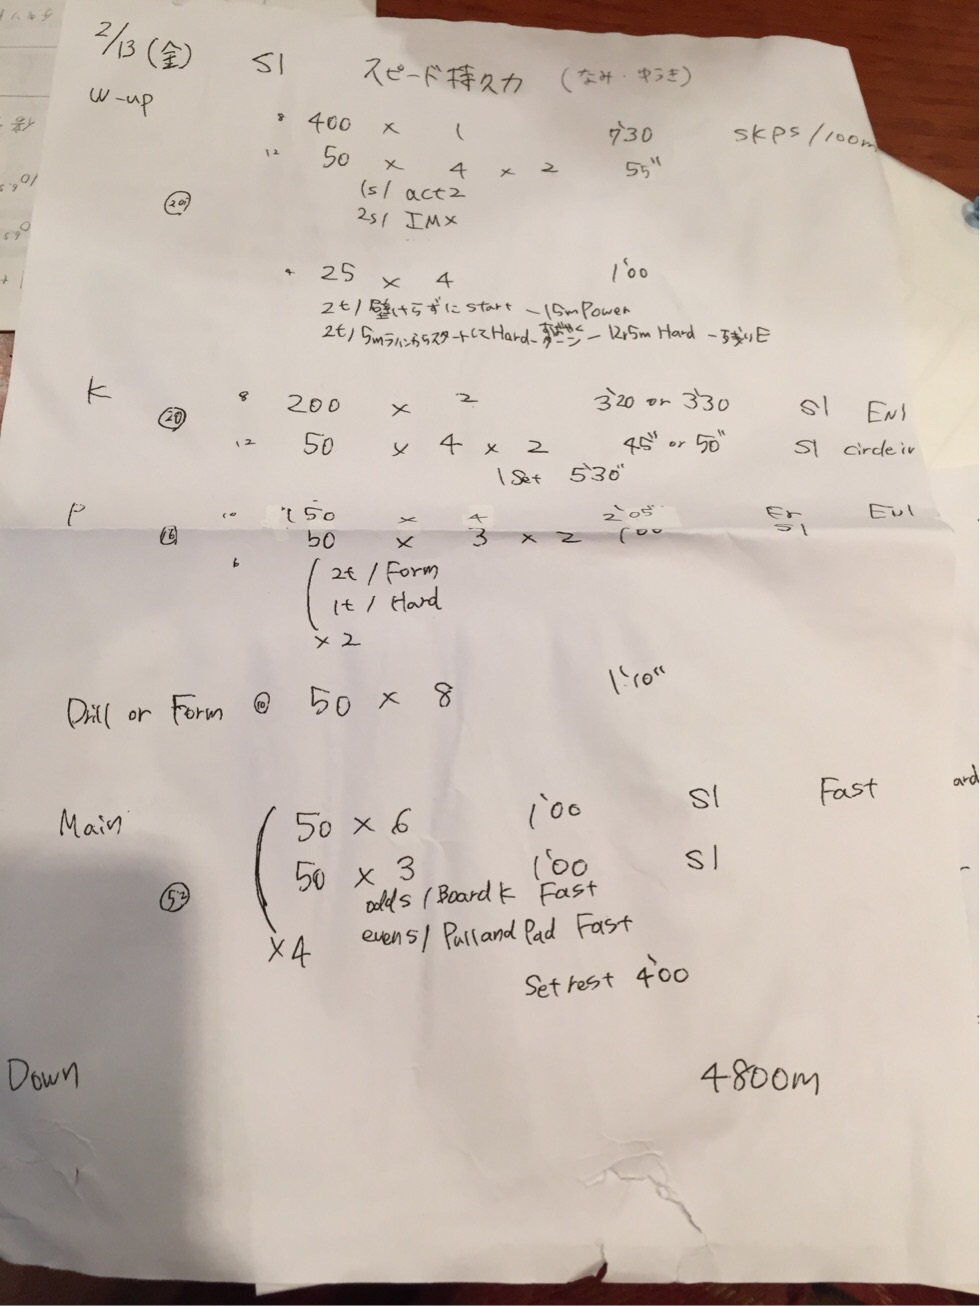 2/13(金) S1 スピード持久力 (なみ・ゆうき)
W-up
8 400 × 1 7'30 SKPS/100m
12 50 × 4 × 2 55"
1s/ act2
2s/ IMX
4 25 × 4 1'00
2t/壁けらずにstart - 15m Power
2t/5mラインからスタートしてHard - すばやくターン - 12,5m Hard - 残りE
K 8 200 × 2 3'20 or 3'30 S1 EN1
20 12 50 × 4 × 2 45" or 50" S1 circle in
1 Set 5'30"
P 10 150 × 4 2'05" Fr EN1
16 50 × 3 × 2 1'00 S1
6 2t / Form
1t / Hard
×2
Drill or Form 10 50 × 8 1'10"
Main 50 × 6 1'00 S1 Fast
50 × 3 1'00 S1
52 odds / Board K Fast
×4 evens / Pull and Pad Fast
Set rest 4'00
Down 4800m